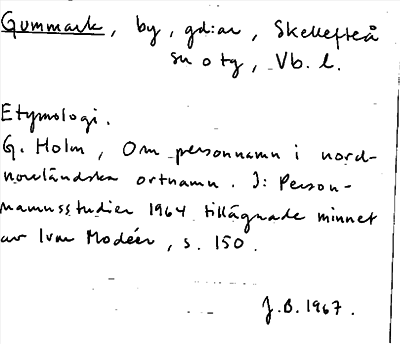 Gummark, by, gd:ar, Skellefteå
sn o tg, Vb. l.
Etymologi.
G. Holm, Om personnamn i nord-
norrländska ortnamn. I: Person-
namnsstudier 1964 tillägnade minnet
av Ivar Modéer, s. 150.
J.B. 1967.